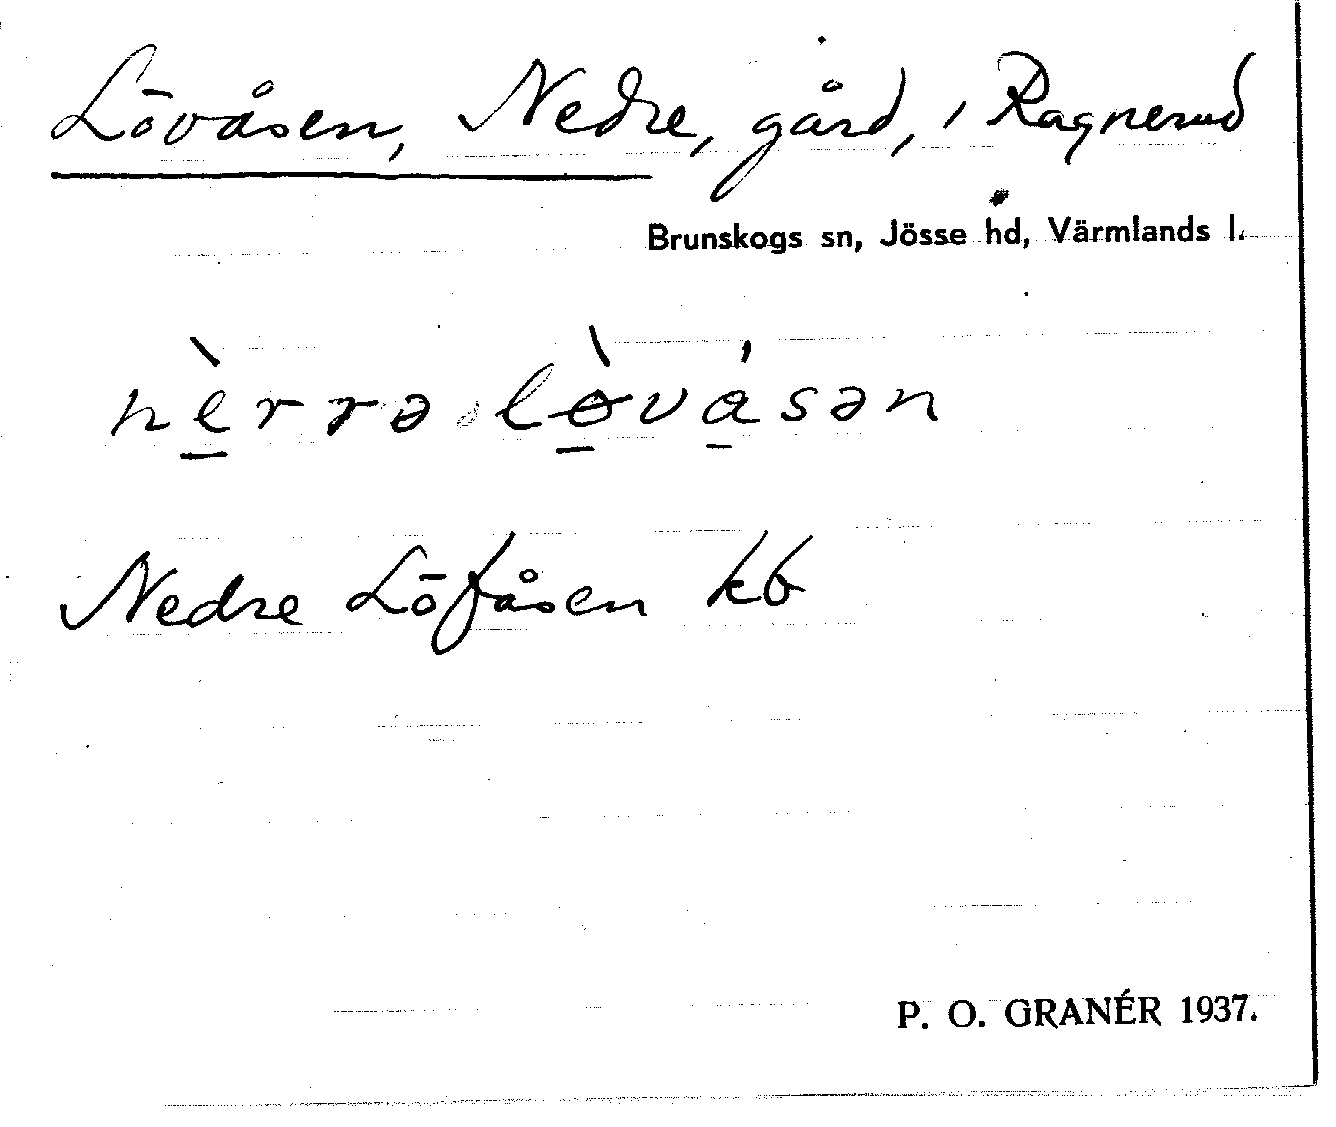 Lövåsen, Nedre, gård, i Ragnerud
Brunskogs sn, Jösse hd, Värmlands l.
nè̱rrə lò̱vá̱sən
Nedre Löfåsen kb
P. O. GRANÉR 1937.